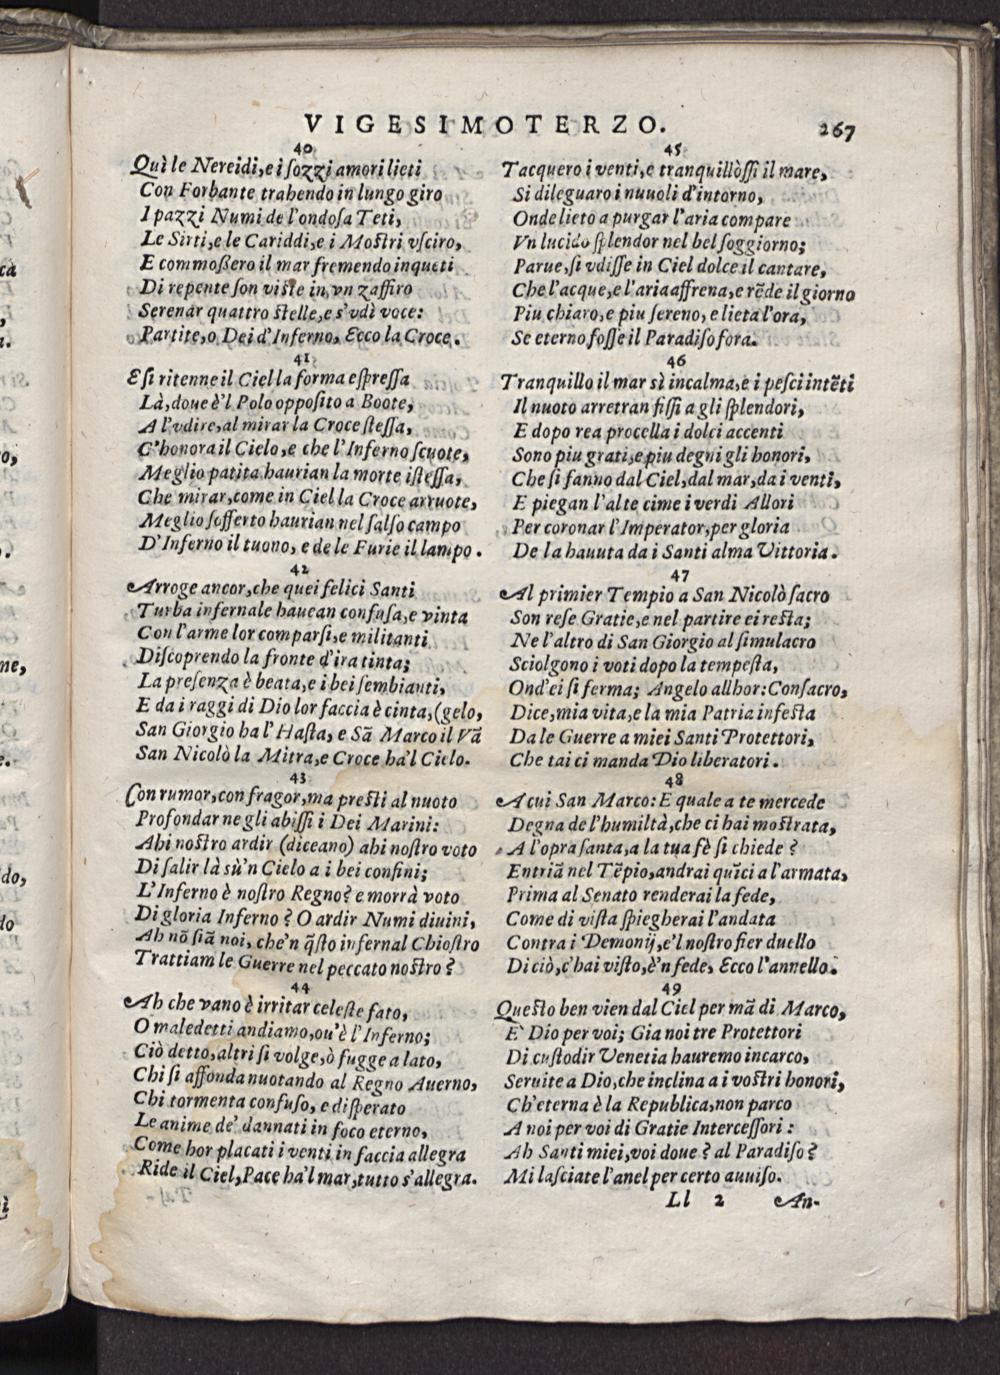 VIGESIMOTERZO. 267
40
Quì le Nereidi, e i ſozzi amori lieti
Con Forbante trahendo in lungo giro
I pazzi Numi de l'ondoſa Teti,
Le Sirti, e le Cariddi, e i Moſtri vſciro,
E commoßero il mar fremendo inqueti
Di repente ſon viſte in vn zaffiro
Serenar quattro ſtelle, e s'vdì voce:
Partite, o Dei d'Inferno, Ecco la Croce.
41
E ſi ritenne il Ciel la forma eſpreſſa
Là, doue è'l Polo oppoſito a Boote,
A l'vdire, al mirar la Croce ſteſſa,
C'honora il Cielo, e che l'Inferno ſcuote,
Meglio patita haurian la morte iſteſſa,
Che mirar, come in Ciel la Croce arruote,
Meglio ſofferto haurian nel ſalſo campo
D'Inferno il tuono, e de le Furie il lampo.
42
Arroge ancor, che quei felici Santi
Turba infernale hauean confuſa, e vinta
Con l'arme lor comparſi, e militanti
Diſcoprendo la fronte d'ira tinta;
La preſenza è beata, e i bei ſembianti,
E da i raggi di Dio lor faccia è cinta, (gelo,
San Giorgio ha l'Haſta, e Sã Marco il Vã
San Nicolò la Mitra, e Croce ha'l Cielo.
43
Con rumor, con fragor, ma preſti al nuoto
Profondar ne gli abiſſi i Dei Marini:
Ahi noſtro ardir (diceano) ahi noſtro voto
Di ſalir là sù'n Cielo a i bei confini;
L'Inferno è noſtro Regno? e morrà voto
Di gloria Inferno? O ardir Numi diuini,
Ah nõ ſiã noi, che'n q̃ſto infernal Chioſtro
Trattiam le Guerre nel peccato noſtro?
44
Ah che vano è irritar celeſte fato,
O maledetti andiamo, ou'è l'Inferno;
Ciò detto, altri ſi volge, ò fugge a lato,
Chi ſi affonda nuotando al Regno Auerno,
Chi tormenta confuſo, e diſperato
Le anime de' dannati in foco eterno,
Come hor placati i venti in faccia allegra
Ride il Ciel, Pace ha'l mar, tutto s'allegra.
45
Tacquero i venti, e tranquillòſſi il mare,
Si dileguaro i nuuoli d'intorno,
Onde lieto a purgar l'aria compare
Vn lucido ſplendor nel bel ſoggiorno;
Parue, ſi vdiſſe in Ciel dolce il cantare,
Che l'acque, e l'aria affrena, e rẽde il giorno
Piu chiaro, e piu ſereno, e lieta l'ora,
Se eterno foſſe il Paradiſo fora.
46
Tranquillo il mar sì incalma, e i peſci intẽti
Il nuoto arretran fiſſi a gli ſplendori,
E dopo rea procella i dolci accenti
Sono piu grati, e piu degni gli honori,
Che ſi fanno dal Ciel, dal mar, da i venti,
E piegan l'alte cime i verdi Allori
Per coronar l'Imperator, per gloria
De la hauuta da i Santi alma Vittoria.
47
Al primier Tempio a San Nicolò ſacro
Son reſe Gratie, e nel partire ei reſta;
Ne l'altro di San Giorgio al ſimulacro
Sciolgono i voti dopo la tempeſta,
Ond'ei ſi ferma; Angelo allhor: Conſacro,
Dice, mia vita, e la mia Patria infeſta
Da le Guerre a miei Santi Protettori,
Che tai ci manda Dio liberatori.
48
A cui San Marco: E quale a te mercede
Degna de l'humiltà, che ci hai moſtrata,
A l'opra ſanta, a la tua fè ſi chiede?
Entriã nel Tẽpio, andrai quĩci a l'armata,
Prima al Senato renderai la fede,
Come di viſta ſpiegherai l'andata
Contra i Demonij, e'l noſtro fier duello
Di ciò, c'hai viſto, è'n fede, Ecco l'annello.
49
Queſto ben vien dal Ciel per mã di Marco,
E' Dio per voi; Gia noi tre Protettori
Di cuſtodir Venetia hauremo incarco,
Seruite a Dio, che inclina a i voſtri honori,
Ch'eterna è la Republica, non parco
A noi per voi di Gratie Interceſſori:
Ah Santi miei, voi doue? al Paradiſo?
Mi laſciate l'anel per certo auuiſo.
Ll 2 An-